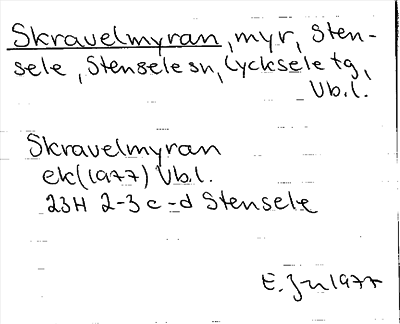 Skravelmyran, myr, Sten-
sele, Stensele sn, Lycksele tg,
Vb.l.
Skravelmyran
ek (1977) Vb.l.
23H 2-3 c-d Stensele
E. Jn 1977